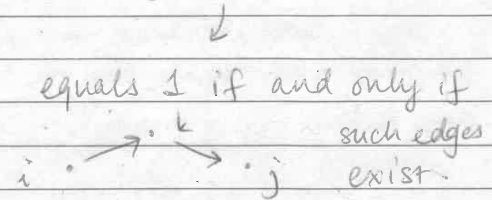 equals 1 if and only if
k such edges
i j exist.